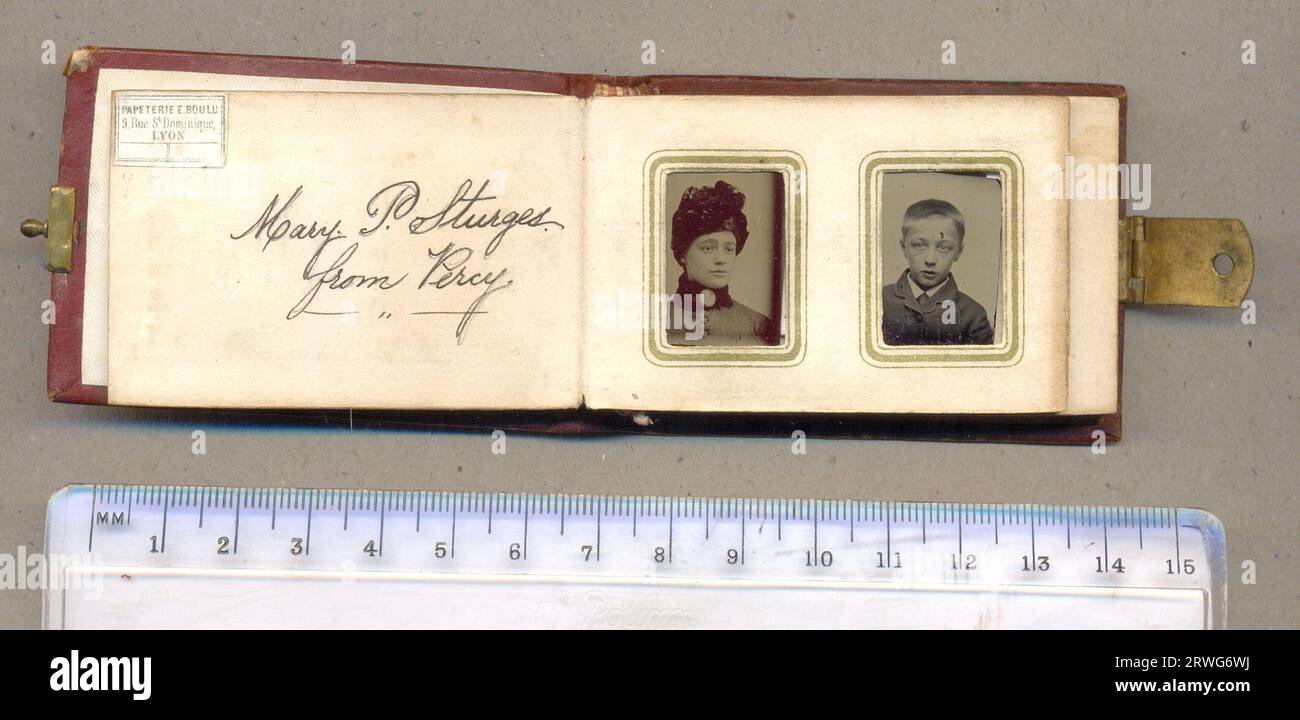 PAPETERIE E. BOULU
9, Rue St Dominique,
LYON
Mary. P. Sturges.
from Percy.
„
MM 1 2 3 4 5 6 7 8 9 10 11 12 13 14 15
alamy
Image ID: 2RWG6WJ
www.alamy.com